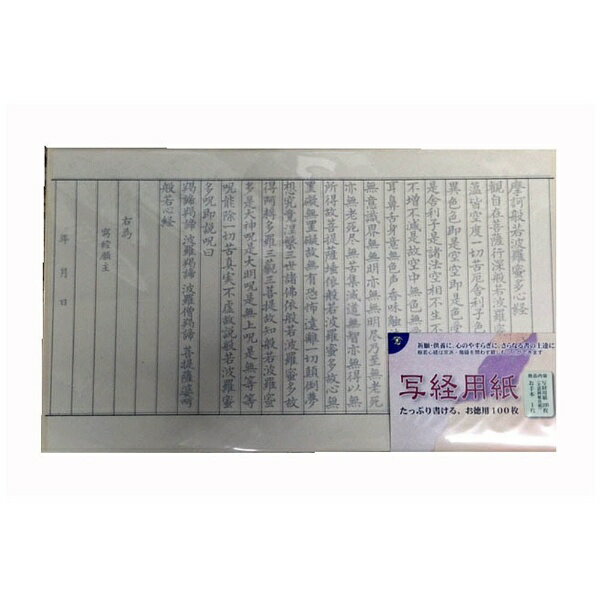 摩訶般若波羅蜜多心経
観自在菩薩行深般若波羅
蘊皆空度一切苦厄舎利子色
異色色即是空空即是色受
是舎利子是諸法空相不生不
不増不減是故空中無色無
耳鼻舌身意無色声香味触
無意識界無無明亦無無明尽乃至無老死
亦無老死尽無苦集滅道無智亦無得以無
所得故菩提薩埵依般若波羅蜜多故心無
罣礙無罣礙故無有恐怖遠離一切顛倒夢
想究竟涅槃三世諸佛依般若波羅蜜多故
得阿耨多羅三藐三菩提故知般若波羅蜜
多是大神呪是大明呪是無上呪是無等等
呪能除一切苦真実不虚故説般若波羅蜜
多呪即説呪曰
羯諦羯諦 波羅羯諦 波羅僧羯諦 菩提薩婆訶
般若心経
右為
寫経願主
年 月 日
祈願・供養に、心のやすらぎに、さらなる書の上達に
般若心経は宗派・職種を問わず
写経用紙
たっぷり書ける、お徳用100枚
写経用紙 100枚
お手本 1枚